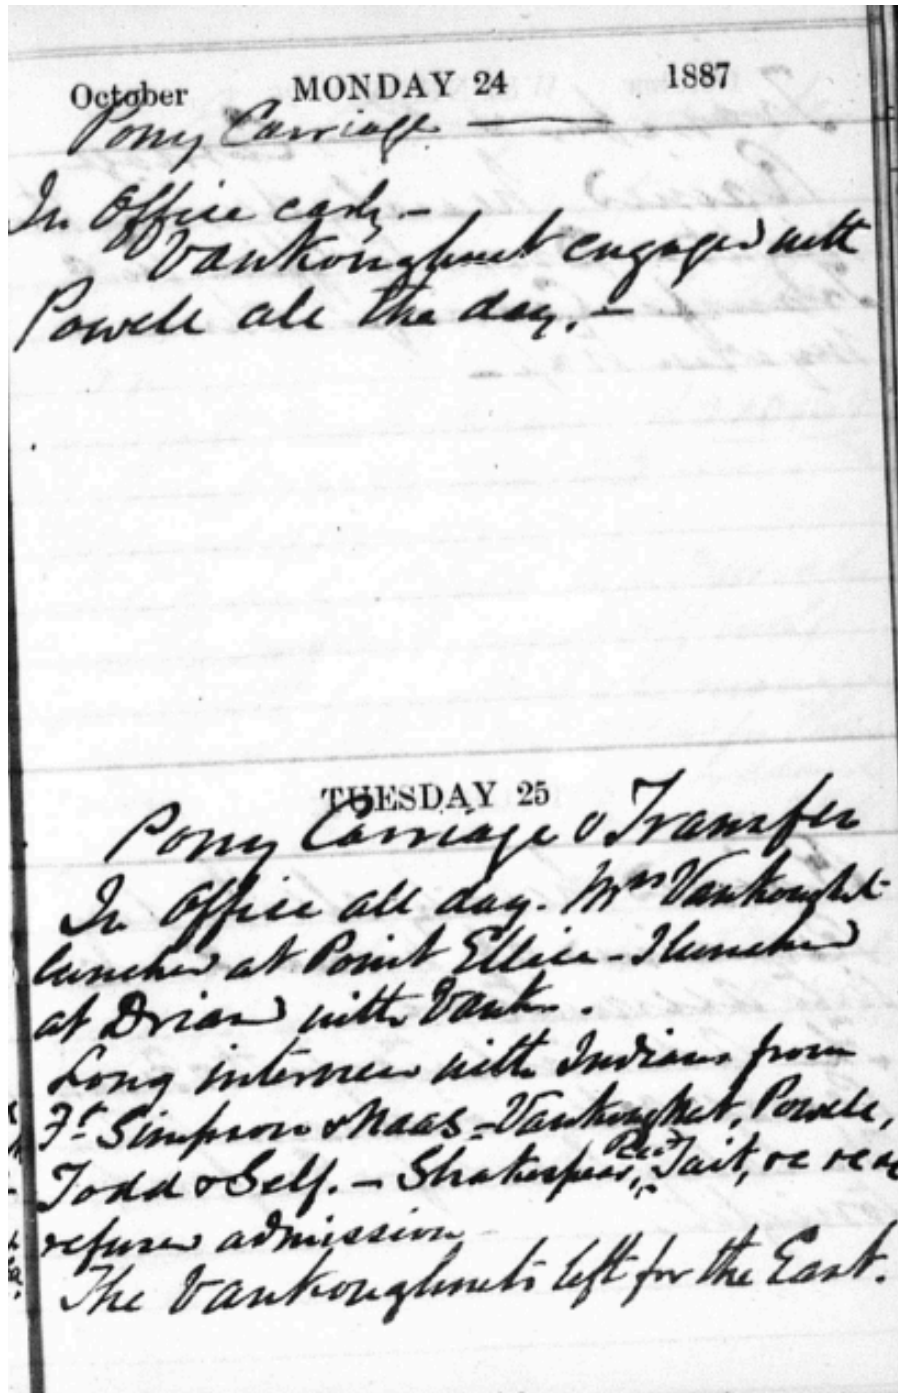 October MONDAY 24 1887
Pony Carriage —
In Office early –
Vankoughnet engaged with
Powell all the day. –
TUESDAY 25
Pony Carriage & Transfer
In Office all day. Mrs Vankought
lunched at Point Ellice – I lunched
at Driard with Vank.
Long interview with Indians from
Ft Simpson & Naas – Vankoughnet, Powell,
Todd & Self. – Shakespear, Revd Tait, &c &c &c
refused admission
The Vankoughnets left for the East.